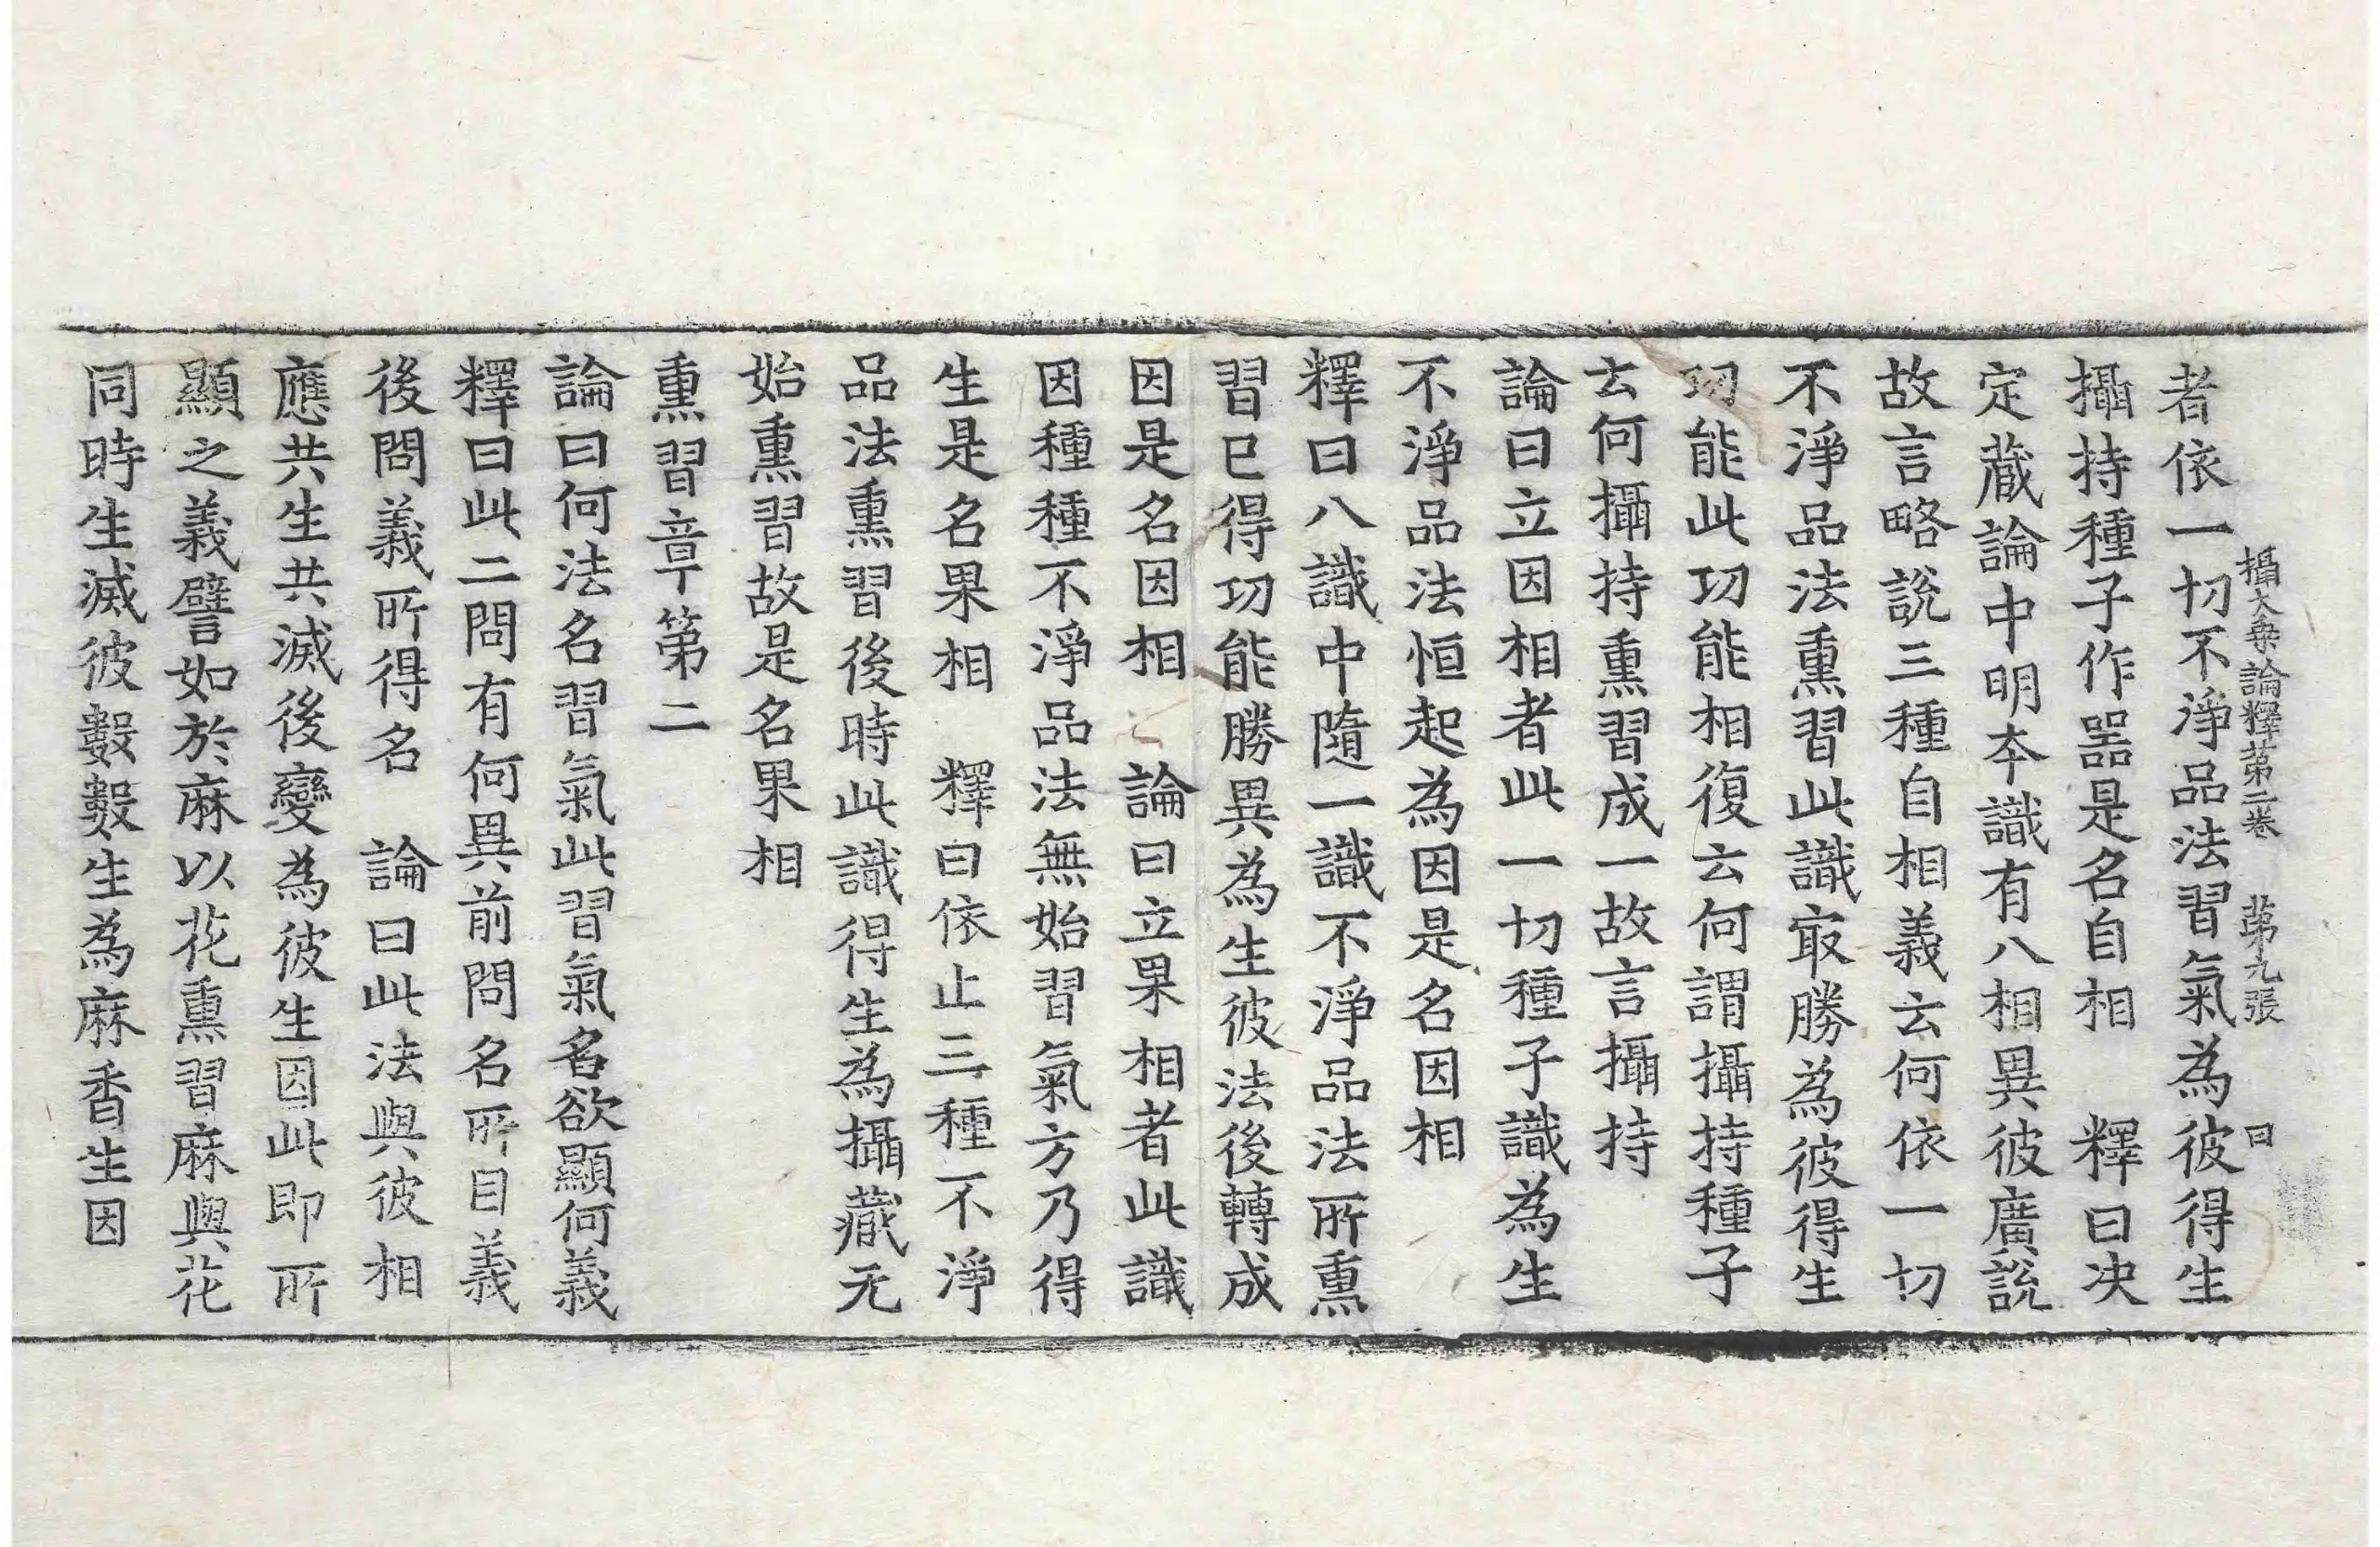 攝大乗論釋苐二卷 苐九張 曰
者依一切不淨品法習氣為彼得生
攝持種子作噐是名自相 釋曰决
定蔵論中明本識有八相異彼廣説
故言略說三種自相義云何依一切
不淨品法熏習此識㝡勝為彼得生
功能此功能相復云何謂攝持種子
云何攝持熏習成一故言攝持
論曰立因相者此一切種子識為生
不淨品法恒起為因是名因相
釋曰八識中隨一識不淨品法所熏
習已得功能勝異為生彼法後轉成
因是名因相 論曰立果相者此識
因種種不淨品法無始習氣方乃得
生是名果相 釋曰依止三種不淨
品法熏習後時此識得生為攝藏无
始熏習故是名果相
熏習章第二
論曰何法名習氣此習氣名欲顯何義
釋曰此二問有何異前問名所目義
後問義所得名 論曰此法與彼相
應共生共滅後變為彼生因此即所
顯之義譬如於麻以花熏習麻與花
同時生滅彼數數生為麻香生因